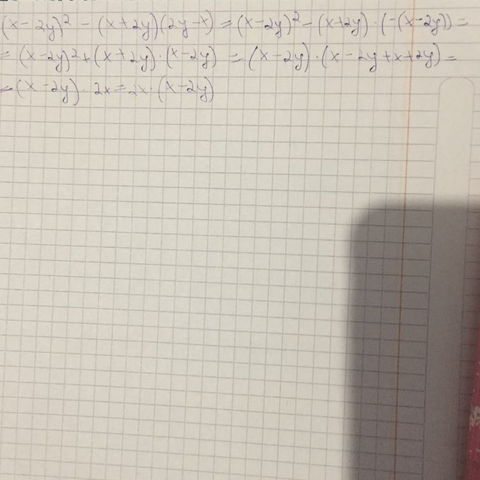 (x-2y)² - (x+2y)(2y-x) = (x-2y)² - (x+2y)·(-(x-2y)) =
= (x-2y)²+(x+2y)·(x-2y) = (x-2y)·(x-2y+x+2y) =
=(x-2y)·2x=2x·(x-2y)